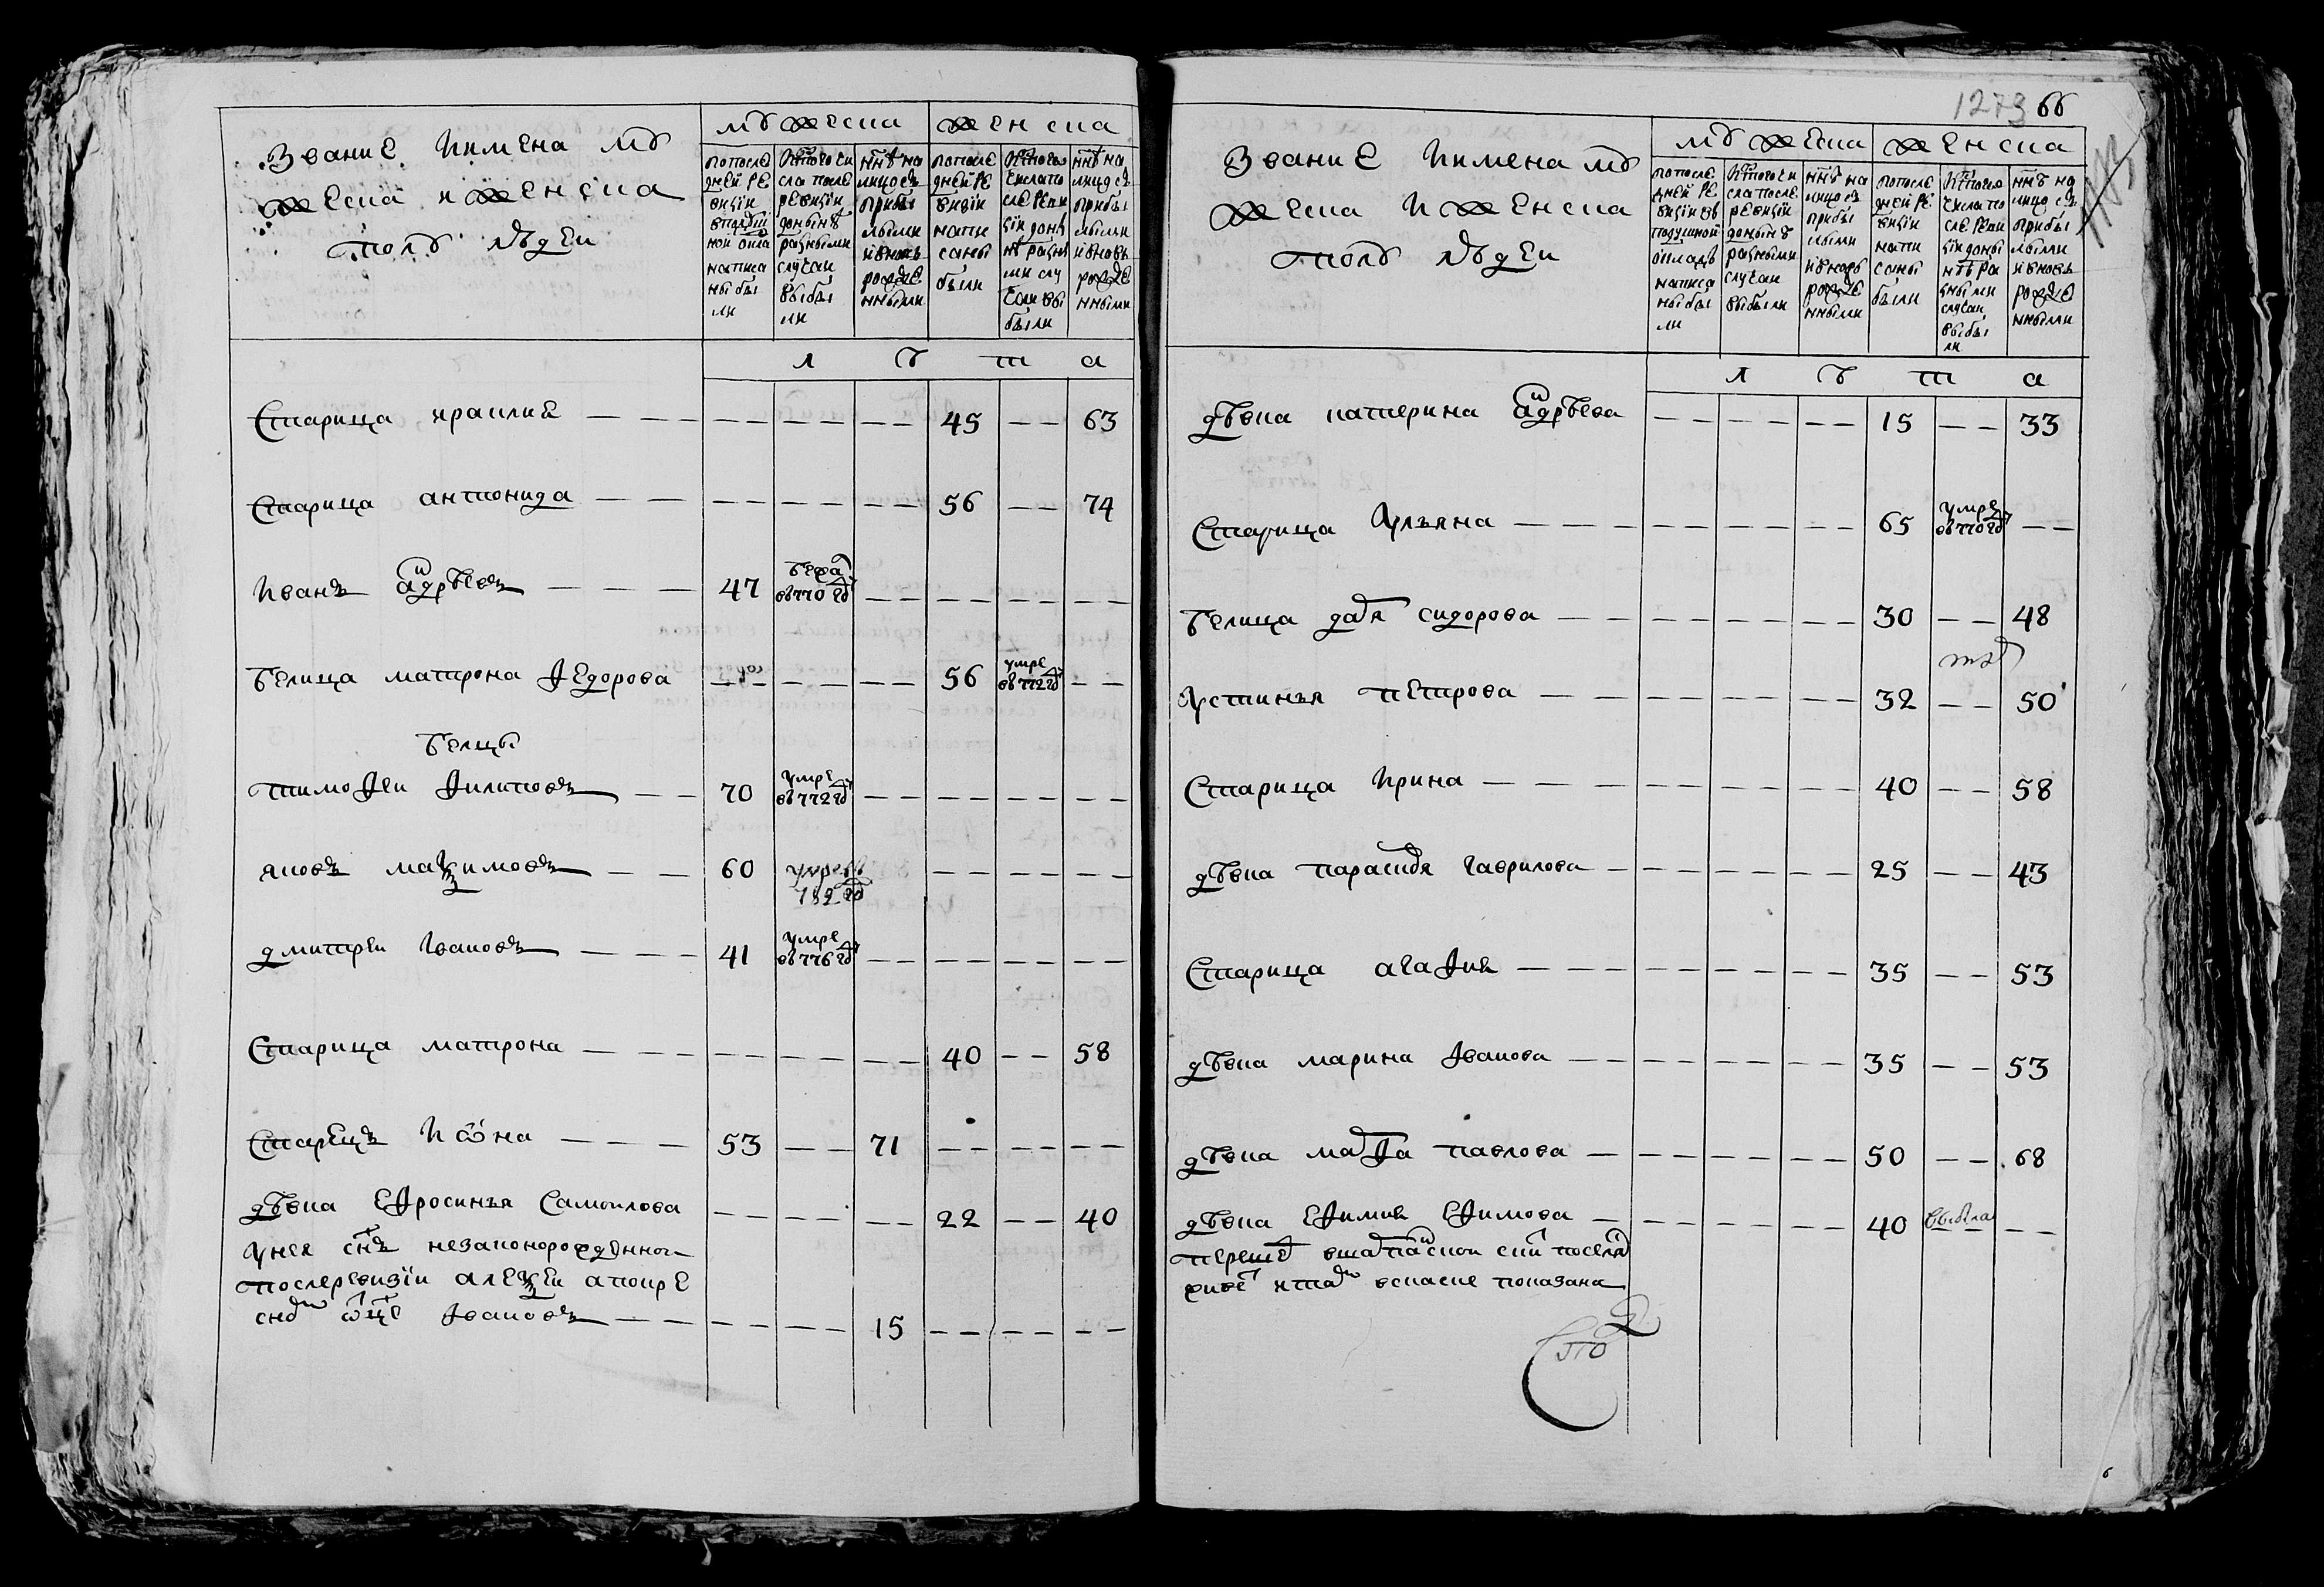 Звание имена му
жеска и женска
полу людеи
мужеска
женска
попосле
дней ре
визiи
вподуш
ном окла
написа
ны бы
ли
ис того чи
сла после
ревизiи
до ныне
разными
случаи
выбы
ли
ныне на
лицо съ
прибы
лыми
и вновь
рожде
нными
попосле
дней ре
визiи
напи
саны
были
ис того
числа по
сле реви
зiи до ны
не разны
ми слу
чаи вы
были
ныне на
лицо съ
прибы
лыми
и вновь
рожде
нными
л ѣ т а
Старица ираилия — — 45 — — 63
Старица антонида — — 56 — — 74
Иванъ андрѣевъ — — 47 бежа
въ 770 году
Белица матрона федорова — — 56 умре
въ 772 году
Белцы
тимофеи филиповъ — — 70 умре
въ 772 году
яковъ маѯимовъ — — 60 умре въ
782 году
дмитреи Iвановъ — — 41 умре
въ 776 году
Старица матрона — — 40 — — 58
Старецъ Иѡна — — 53 — — 71
дѣвка ефросинья Самоилова — — 22 — — 40
унея снъ незаконорожденнои
послеревизiи алеѯеи апокре
сному ѿце Iвановъ — — 15
1273 66
Звание имена му
жеска и женска
полу людеи
мужеска
женска
попосле
дней ре
визiи въ
подушной
окладъ
написа
ны бы
ли
ис того чи
сла после
ревизiи
до ныне
разными
случаи
выбыли
ныне на
лицо съ
прибы
лыми
и вновь
рожде
нными
попосле
дней ре
визiи
напи
саны
были
ис того
числа по
сле реви
зiи до ны
не ра
зными
случаи
выбы
ли
ныне на
лицо съ
прибы
лыми
и вновь
рожде
нными
л ѣ т а
дѣвка катерина андрѣева — — 15 — — 33
Старица Ульяна — — 65 умре
въ 770 году — —
Белица дарья сидорова — — 30 — — 48
Устинья петрова — — 32 — — 50
Старица Ирина — — 40 — — 58
дѣвка парасковья гаврилова — — 25 — — 43
Старица агафия — — 35 — — 53
дѣвка марина Iванова — — 35 — — 53
дѣвка марфа павлова — — 50 — — 68
дѣвка ефимия ефимова — — 40 выбыла — —
показана